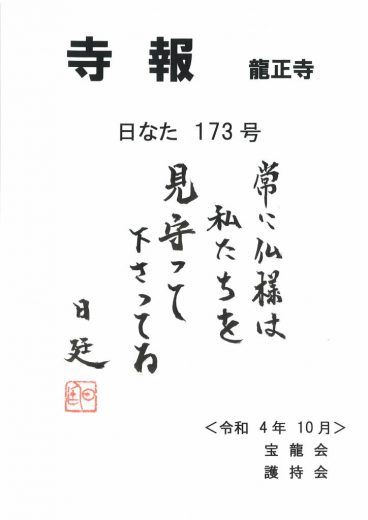 寺報 龍正寺
日なた 173号
常に仏様は
私たちを
見守って
下さってね
日廷
<令和 4年 10月>
宝龍会
護持会